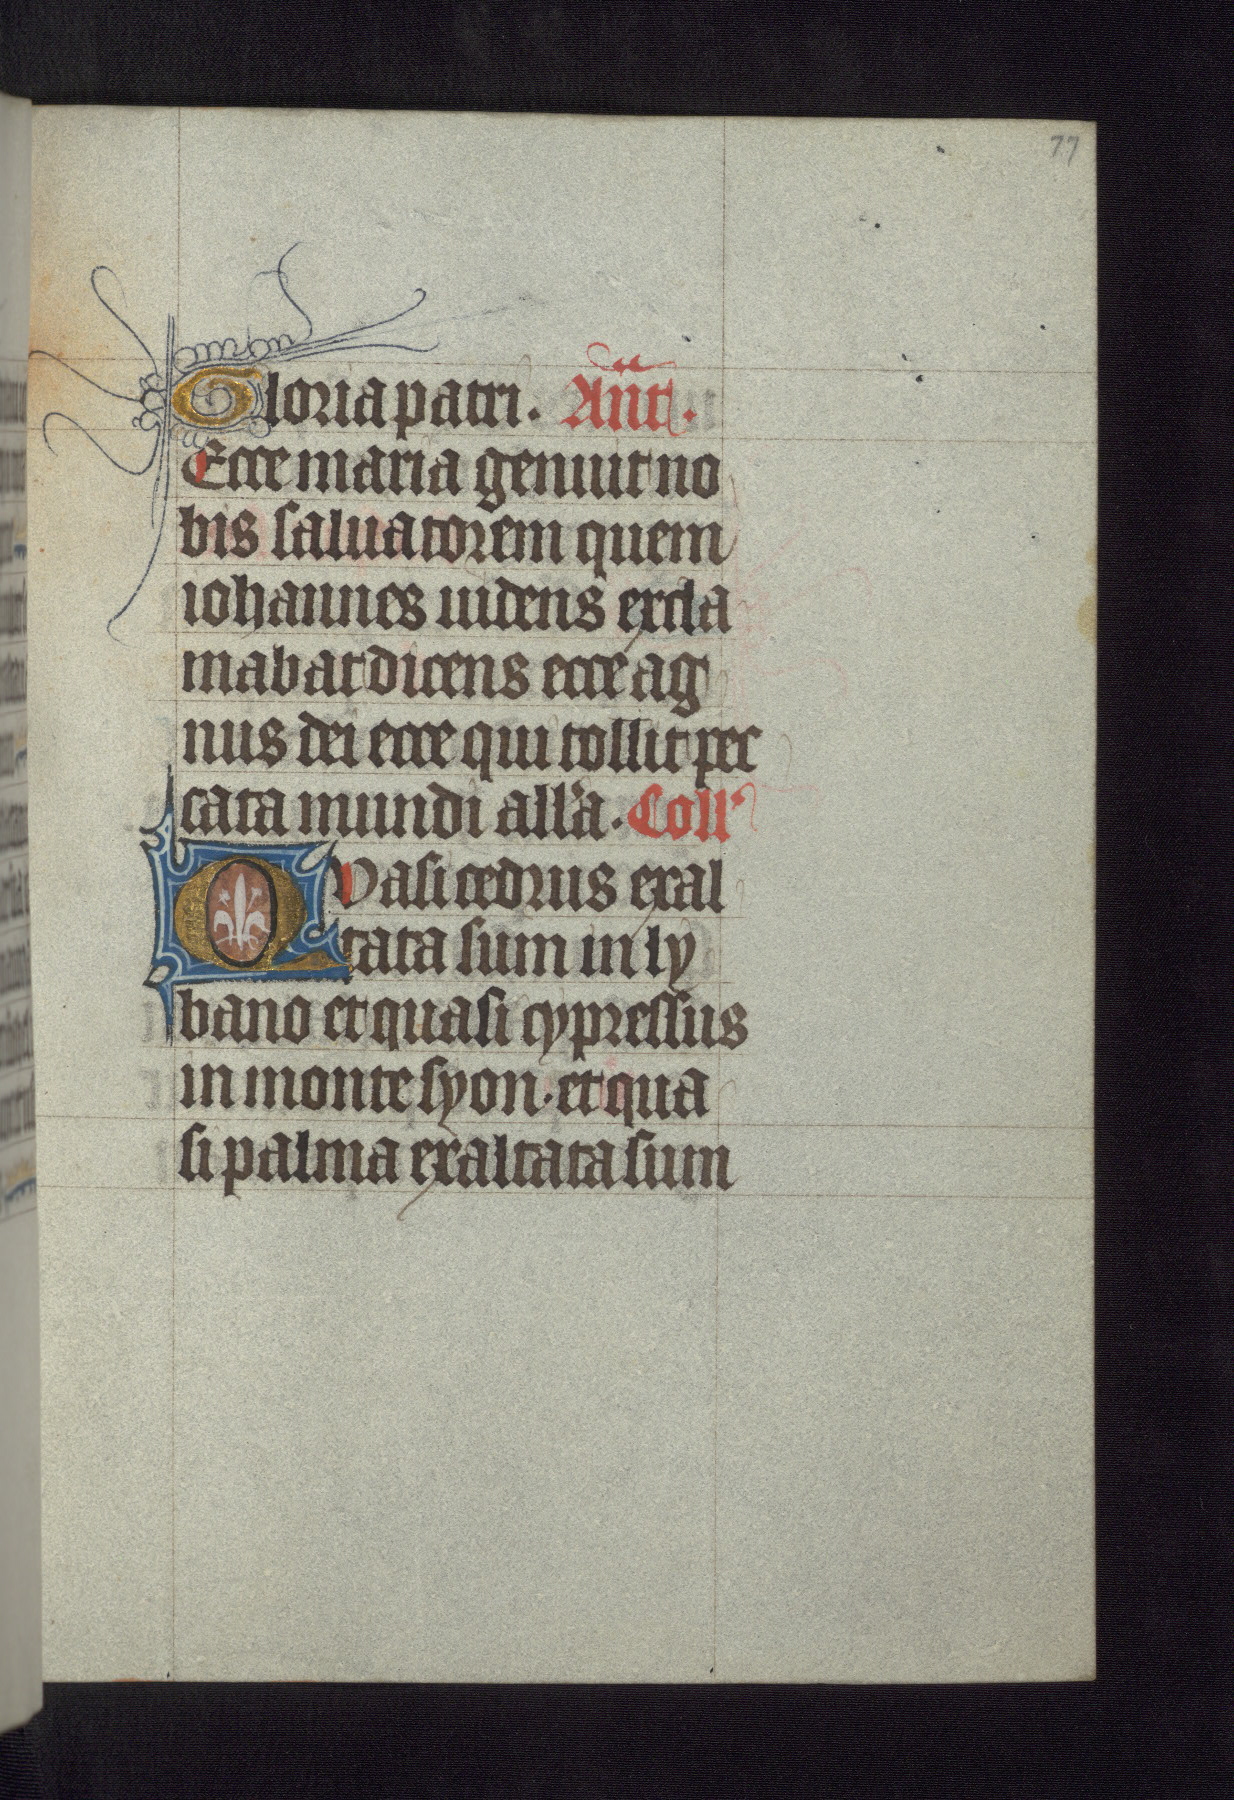 77
Gloria patri. Ant̄.
Ecce maria genuit no
bis saluatorem quem
iohannes uidens excla
mabat dicens ecce ag
nus dei ecce qui tollit pec
cata mundi all'a. Coll'
QVasi cedrus exal
tata sum in ly
bano et quasi cypressus
in monte syon. et qua
si palma exaltata sum